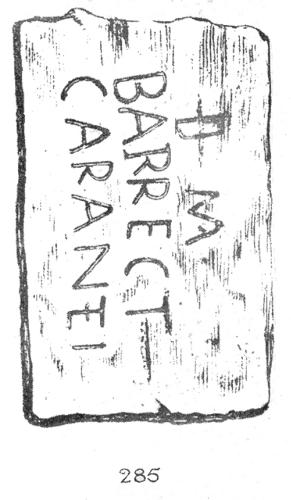 D M
BARRECT
CARANTI
285